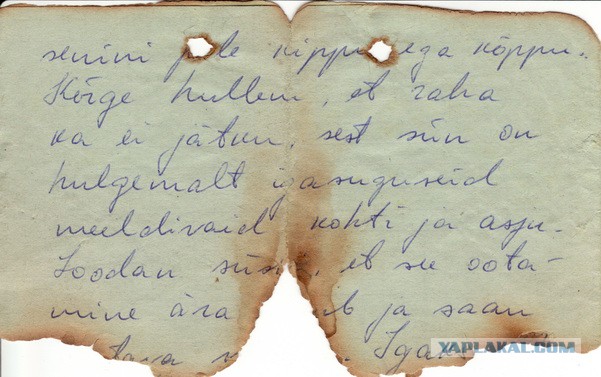 senini pole kippu ega kõppu.
Kõige hullem, et raha
ka ei jätku, sest siin on
hulgemalt igasuguseid
meeldivaid kohti ja asju.
Loodan siiski, et see oota-
mine ära ja saan
YAPLAKAL.COM